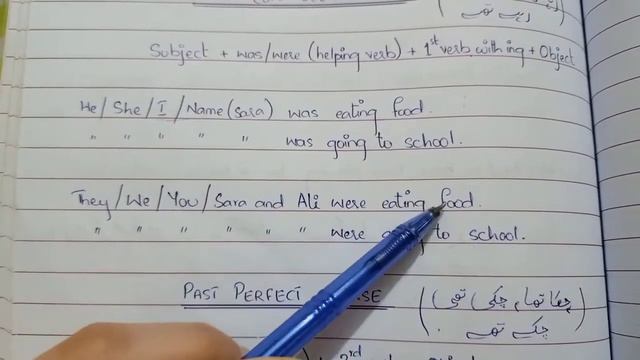 رہے تھے )
Subject + was/were (helping verb) + 1st verb with ing + Object
He/She/I/Name (Sara) was eating food.
" " " " " was going to school.
They/We/You/Sara and Ali were eating food.
" " " " " " were to school.
PAST PERFECT (چکا تھا، چکی تھی،
چکے تھے.)
3rd